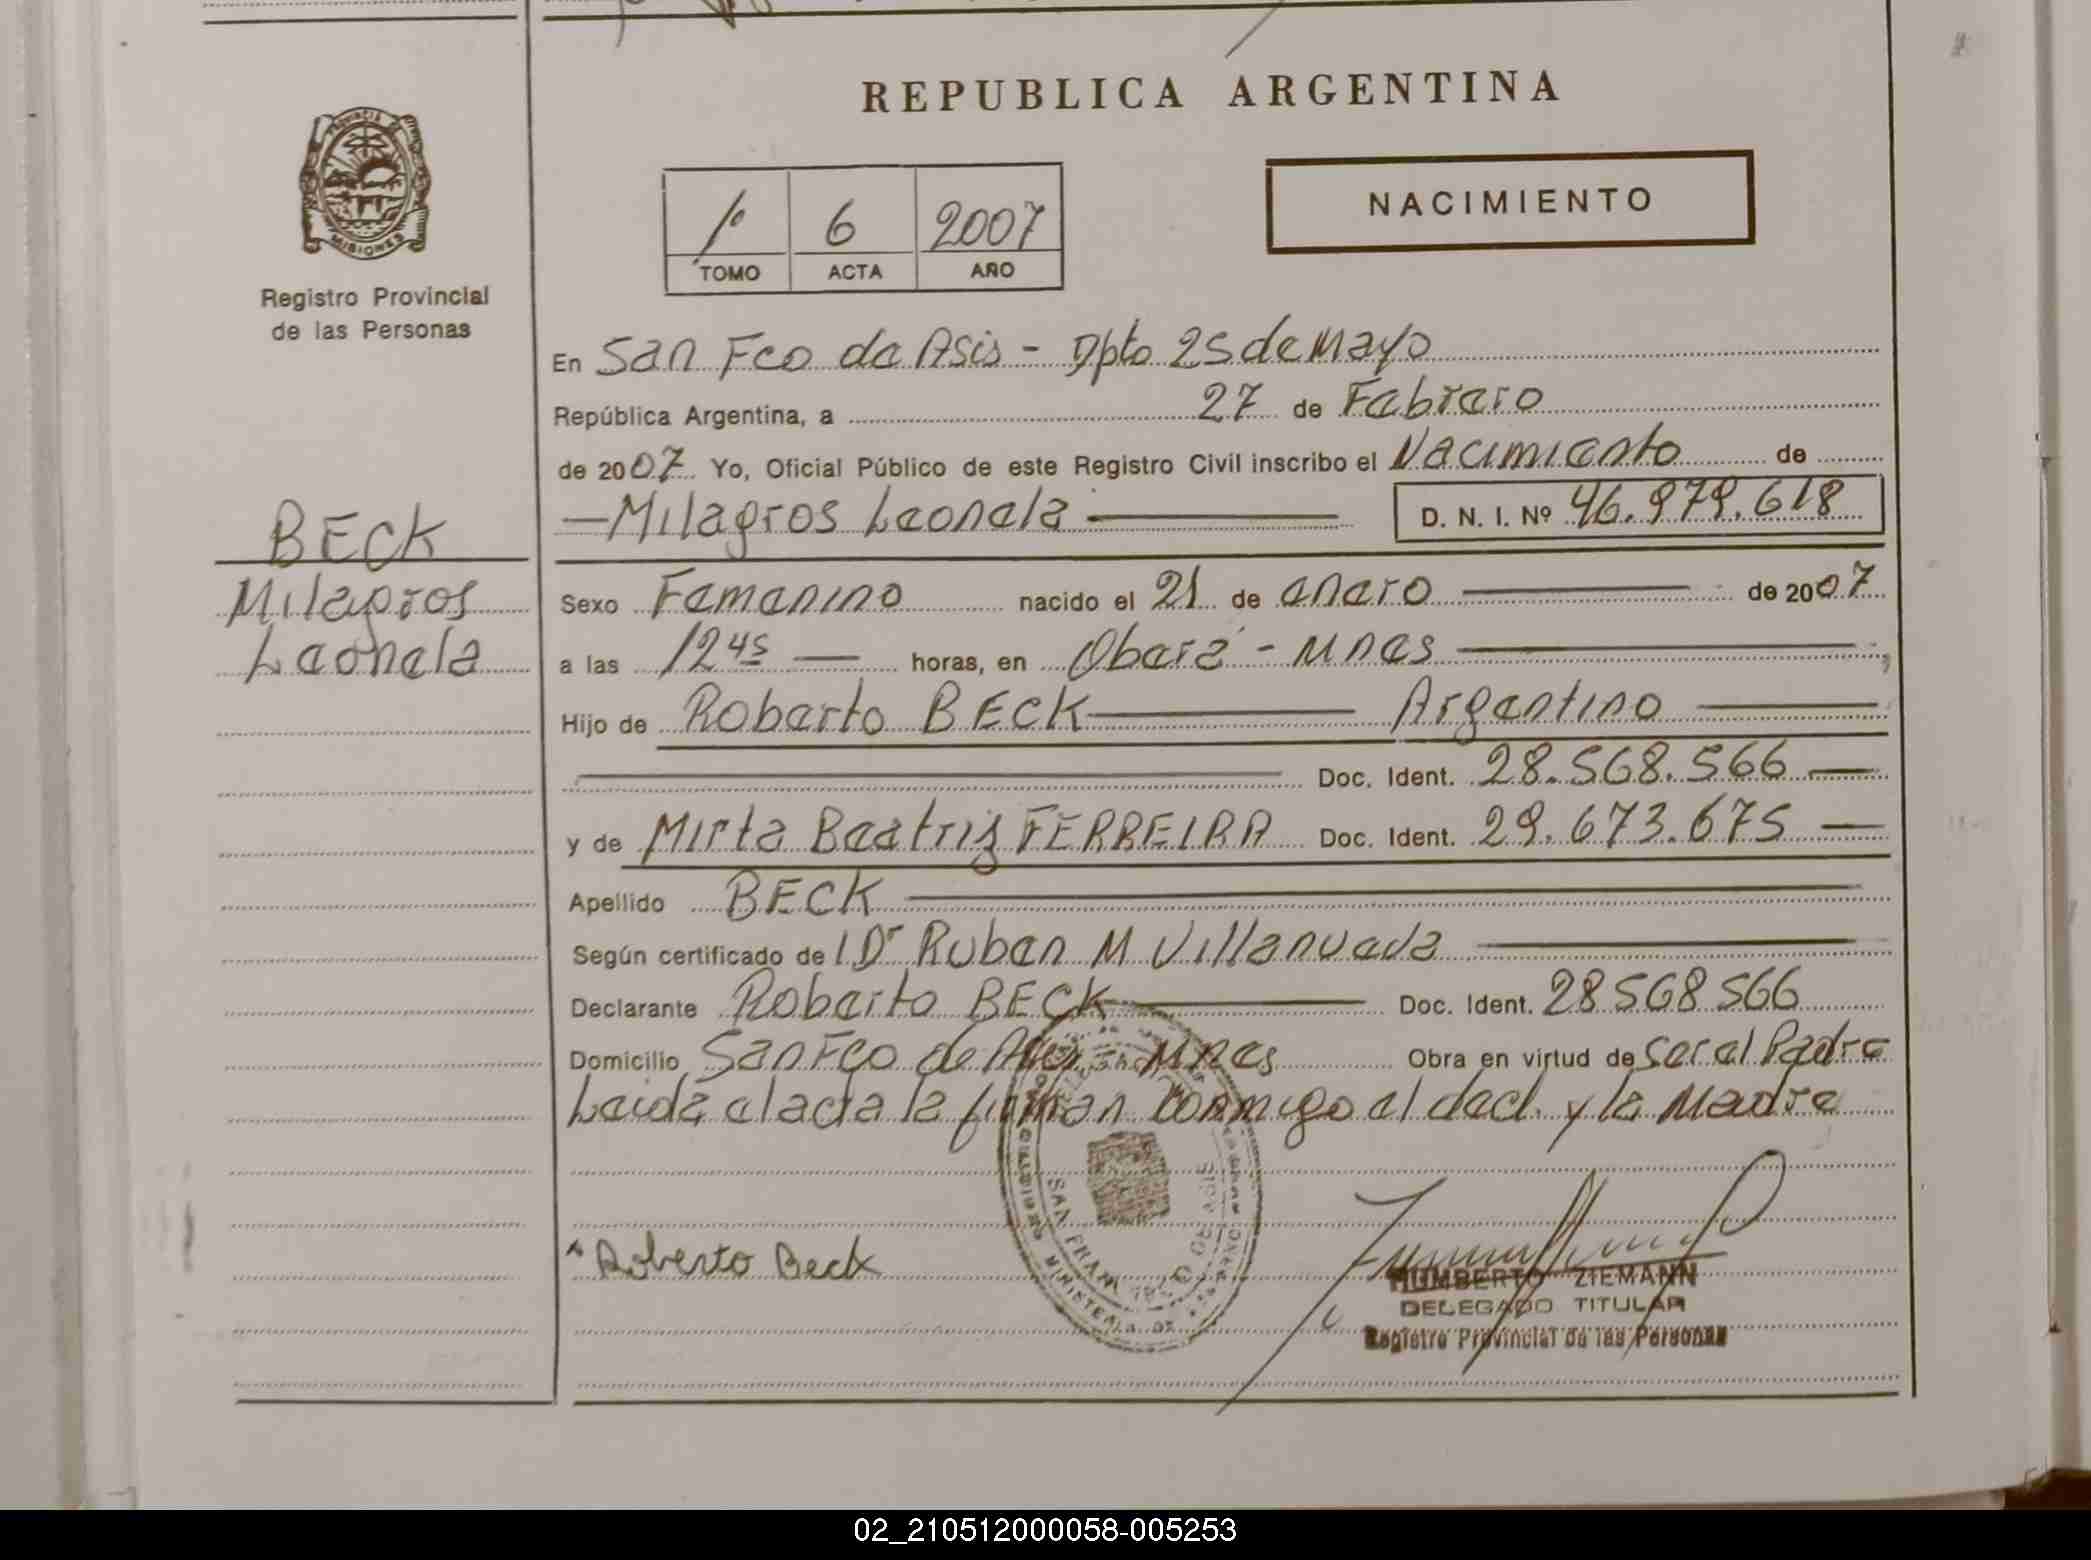 REPUBLICA ARGENTINA
PROVINCIA DE
MISIONES
Registro Provincial
de las Personas
1º 6 2007
TOMO ACTA AÑO
NACIMIENTO
En San Fco de Asis - Dpto 25 de Mayo
República Argentina, a 27 de Febrero
de 2007 Yo, Oficial Público de este Registro Civil inscribo el Nacimiento de
— Milagros Leonela — D. N. I. Nº 46.979.618
BECK
Milagros
Leonela
Sexo Femenino nacido el 21 de enero — de 2007
a las 12 45 — horas, en Oberá - Mnes —
Hijo de Roberto BECK — Argentino —
— Doc. Ident. 28.568.566 —
y de Mirta Beatriz FERREIRA Doc. Ident. 29.673.675 —
Apellido BECK —
Según certificado de l Dr Ruben M Villanueva —
Declarante Roberto BECK — Doc. Ident. 28568566
Domicilio San Fco de Asis - Mnes Obra en virtud de ser el Padre
Leida el acta la firman conmigo el decl. y la Madre
SAN FRANCISCO DE ASIS
MINISTERIO DE
Roberto Beck
HUMBERTO ZIEMANN
DELEGADO TITULAR
Registro Provincial de las Personas
02_210512000058-005253